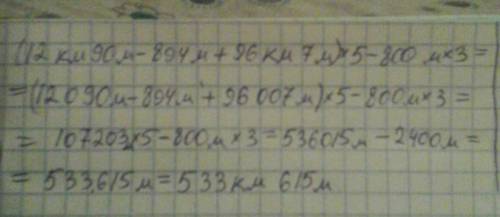 (12 км 90м-894м+96 км 7м)×5-800м×3=
=(12 090м-894м+96 007м)×5-800м×3=
= 107203×5-800м×3=536015м-2400м=
= 533,615м=533км 615м